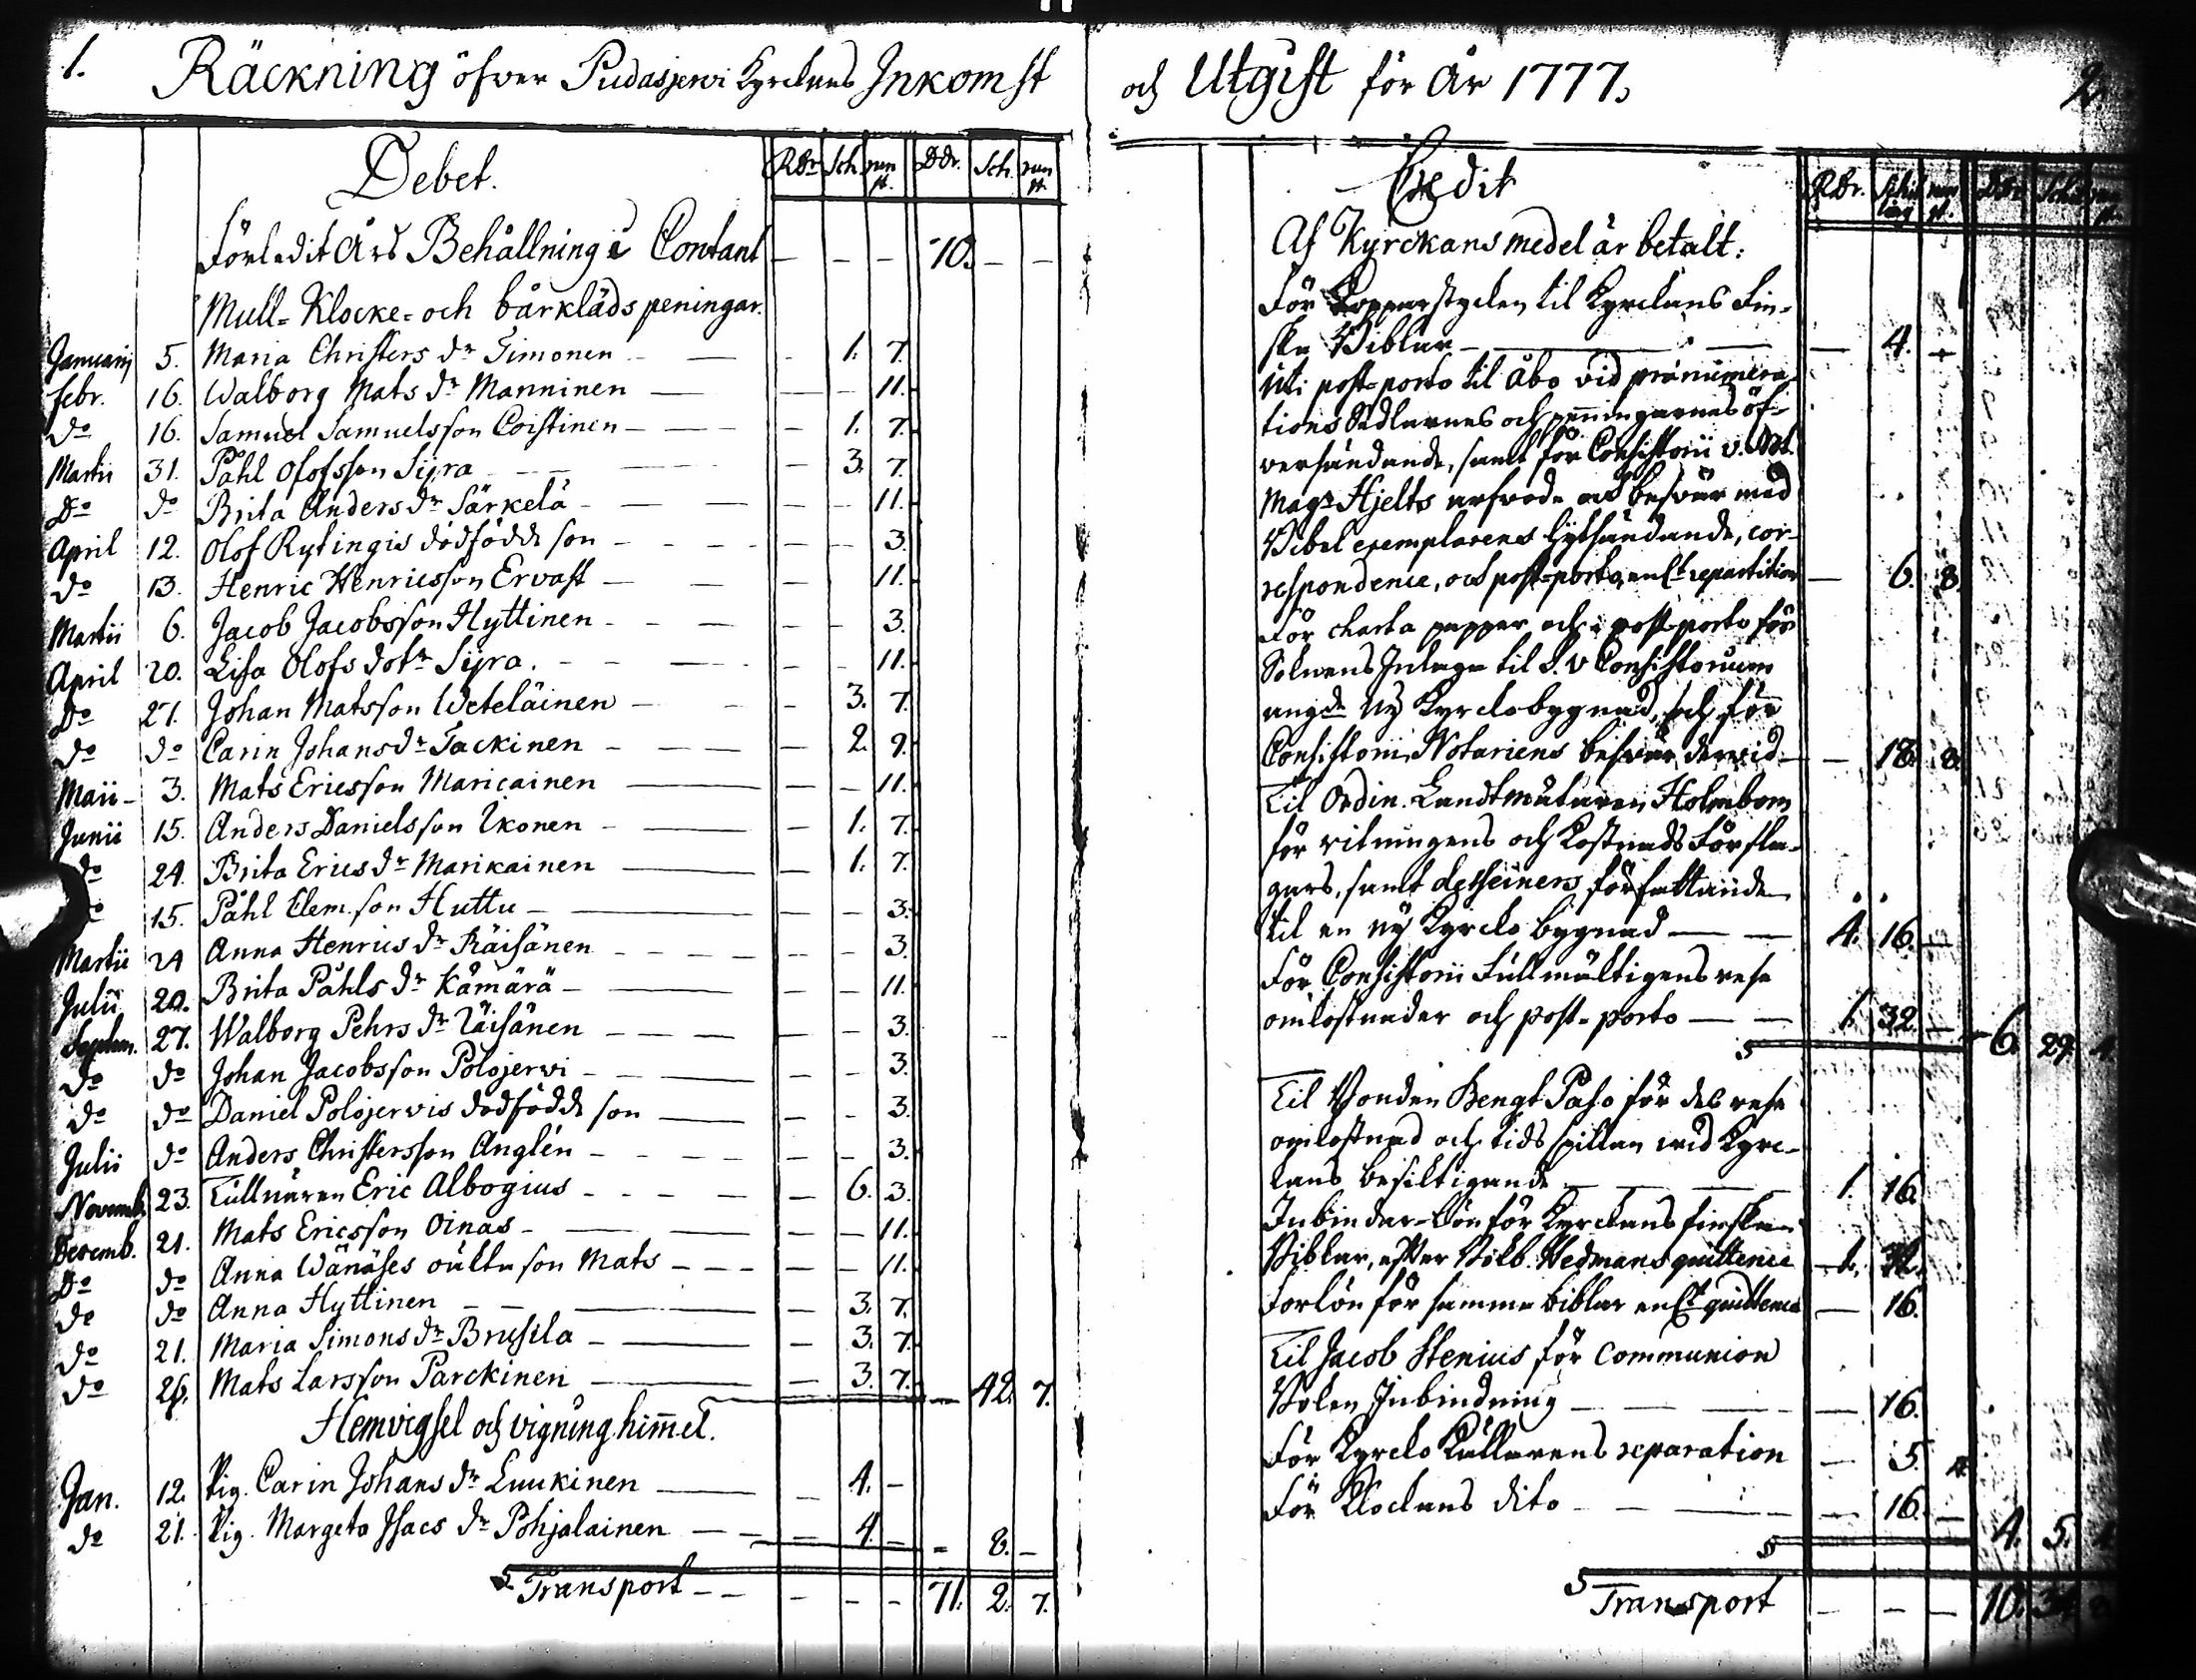 1. Räckning öfver Pudasjerwi Kyrckans Inkomst
Debet. Rdr Sch. runst. Ddr. Sch. runst.
Förledit Års Behållning i Contant — — — 70. — —
Mull- Klocke- och bårkläds peningar.
Januarij 5. Maria Christers dr Timonen — 1. 7.
febr. 16. Walborg Mats dr Manninen — — 11.
do 16. Samuel Samuelsson Coistinen — 1. 7.
Martii 31. Påhl Olofsson Sijra — 3. 7.
Do do Brita Anders dr Särkelä — — 11.
April 12. Olof Rytingis dödfödde son — — 3.
do 13. Henric Henricsson Ervast — — 11.
Martii 6. Jacob Jacobsson Hyttinen — — 3.
April 20. Lisa Olofs dotr Sijra. — — 11.
Do 27. Johan Matsson Weteläinen — 3. 7.
do do Carin Johans dr Tackinen — 2. 9.
Maii 3. Mats Ericsson Maricainen — — 11.
Junii 15. Anders Danielsson Ikonen — 1. 7.
do 24. Brita Erics dr Marikainen — 1. 7.
do 15. Påhl Clem.son Huttu — — 3.
Martii 24 Anna Henrics dr Räisänen — — 3.
Julii 20. Brita Påhls dr Kämärä — — 11.
Septem. 27. Walborg Pehrs dr Räisänen — — 3.
do do Johan Jacobsson Polojerwi — — 3.
do do Daniel Polojervis dödfödde son — — 3.
Julii do Anders Christersson Anglén — — 3.
Novemb. 23. Tullnären Eric Albogius — 6. 3.
Decemb. 21. Mats Ericsson Oinas — — 11.
Do do Anna Wänäses oäkta son Mats — — 11.
do do Anna Hyttinen — 3. 7.
do 21. Maria Simons dr Brusila — 3. 7.
do 26. Mats Larsson Parckinen — 3. 7. — 42. 7.
Hemvigsel och vigning himel.
Jan. 12. Pig. Carin Johans dr Luukinen — 4. —
do 21. Pig. Margeta Isacs dr Pohjalainen — 4. — — 8. —
Transport — — — 71. 2. 7.
och Utgift för År 1777. 2.
Credit Rdr. Schilling runst. Ddr. Sch.
Af Kyrckans medel är betalt:
För Kopparstycken til Kyrckans Fin-
ska Biblar — 4. —
Uti post-porto til Åbo vid prænumera-
tions Sedlarnes och penningarnes öf-
versändande, samt för Consistorii v. Not.
Magr Hjelts arfvode och besvär med
Bibel exemplarens hytsändande, cor-
respondence, och post-porto, enlt repartition — 6. 8.
För charta papper och post porto för
Socknens Inlaga til S. v Consistorium
angde Ny Kyrckobygnad, och för
Consistorii Notariens besvär dervid — 18. 8.
Til Ordin. Landtmätaren Holmbom
för ritningens och Kostnads Försla-
gers, samt desseiners författande
til en ny Kyrcko bygnad — 4. 16. —
För Consistorii Fullmäktigens rese
omkostnader och post-porto — 1. 32. — 6. 29.
Til Bonden Bengt Paso för des rese
omkostnad och tids spillan vid Kyrc-
kans besiktigande 1. 16.
Inbindar-Lön för Kyrckans finska
Biblar, efter Bokb. Wedmans quittence
Forlön för samma biblar enlt quittence — 16.
Til Jacob Stenius för Communion
Boken Inbindning — 16.
För Kyrcko Källarens reparation — 5.
För Klockans dito — 16. — 4. 5.
Transport — — — 10.